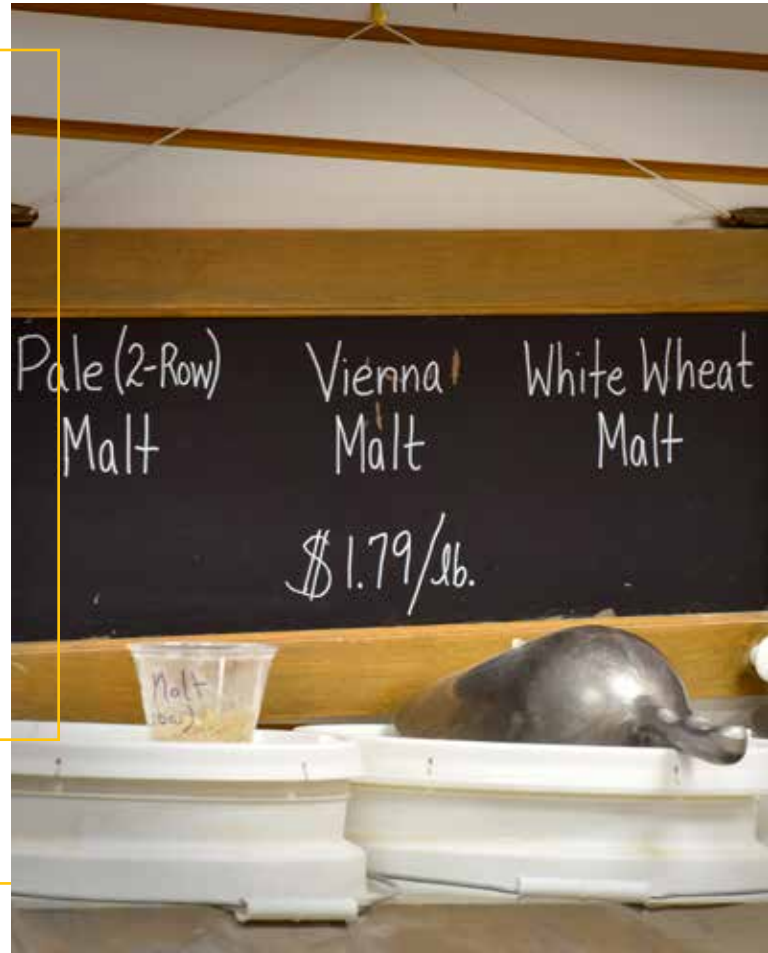 Pale (2-Row)
Malt
Vienna
Malt
White Wheat
Malt
$1.79/lb.
Malt